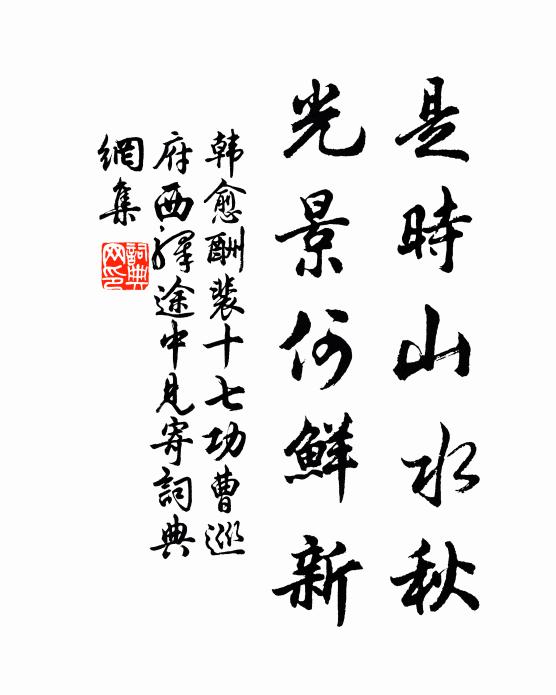 是時山水秋
光景何鮮新
韓愈酬裴十七功曹巡
府西驛途中見寄詞典
網集
詞典
网印